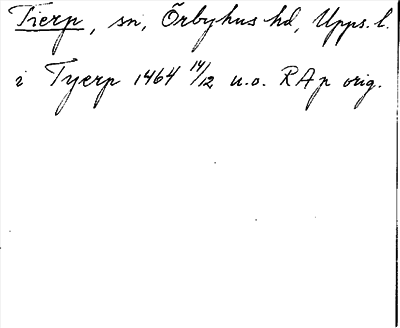 Tierp, sn, Örbyhus hd, Upps. l.
i Tyerp 1464 14/12 u.o. RAp orig.